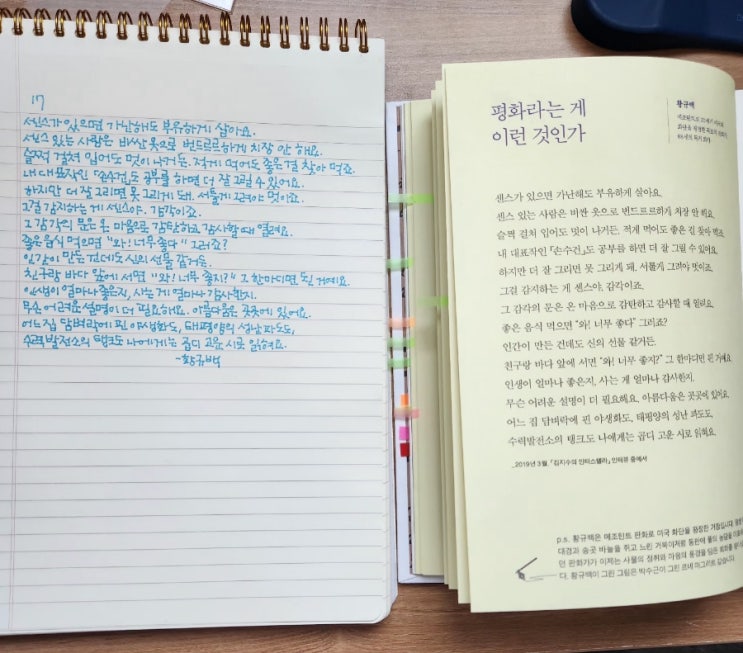 17
센스가 있으면 가난해도 부유하게 살아요.
센스 있는 사람은 비싼 옷으로 번드르르하게 치장 안 해요.
슬쩍 걸쳐 입어도 멋이 나거든. 적게 먹어도 좋은 걸 찾아 먹죠.
내 대표작인 「손수건」도 공부를 하면 더 잘 그릴 수 있어요.
하지만 더 잘 그리면 못 그리게 돼. 서툴게 그려야 멋이죠.
그걸 감지하는 게 센스야. 감각이죠.
그 감각의 문은 온 마음으로 감탄하고 감사할 때 열려요.
좋은 음식 먹으면 "와! 너무 좋다" 그러죠?
인간이 만든 건데도 신의 선물 같거든.
친구랑 바다 앞에 서면 "와! 너무 좋지?" 그 한마디면 된 거예요.
인생이 얼마나 좋은지, 사는 게 얼마나 감사한지.
무슨 어려운 설명이 더 필요해요. 아름다움은 곳곳에 있어요.
어느 집 담벼락에 핀 야생화도, 태평양의 성난 파도도,
수력발전소의 탱크도 나에게는 곱디 고운 시로 읽혀요.
-황규백
평화라는 게
이런 것인가
황규백
센스가 있으면 가난해도 부유하게 살아요.
센스 있는 사람은 비싼 옷으로 번드르르하게 치장 안 해요.
슬쩍 걸쳐 입어도 멋이 나거든. 적게 먹어도 좋은 걸 찾아 먹죠.
내 대표작인 「손수건」도 공부를 하면 더 잘 그릴 수 있어요.
하지만 더 잘 그리면 못 그리게 돼. 서툴게 그려야 멋이죠.
그걸 감지하는 게 센스야. 감각이죠.
그 감각의 문은 온 마음으로 감탄하고 감사할 때 열려요.
좋은 음식 먹으면 "와! 너무 좋다" 그러죠?
인간이 만든 건데도 신의 선물 같거든.
친구랑 바다 앞에 서면 "와! 너무 좋지?" 그 한마디면 된 거예요.
인생이 얼마나 좋은지, 사는 게 얼마나 감사한지.
무슨 어려운 설명이 더 필요해요. 아름다움은 곳곳에 있어요.
어느 집 담벼락에 핀 야생화도, 태평양의 성난 파도도,
수력발전소의 탱크도 나에게는 곱디 고운 시로 읽혀요.
_2019년 3월, 「김지수의 인터스텔라」 인터뷰 중에서
p.s. 황규백은 메조틴트 판화로 미국 화단을 평정한 거장입니다.
대경과 송곳 바늘을 쥐고 느린 거북이처럼 동판에
던 판화가가 이제는 사물의 정취와 마음의 풍경을 담은 회화를
다. 황규백이 그린 그림은 박수근이 그린 르네 마그리트 같습니다.